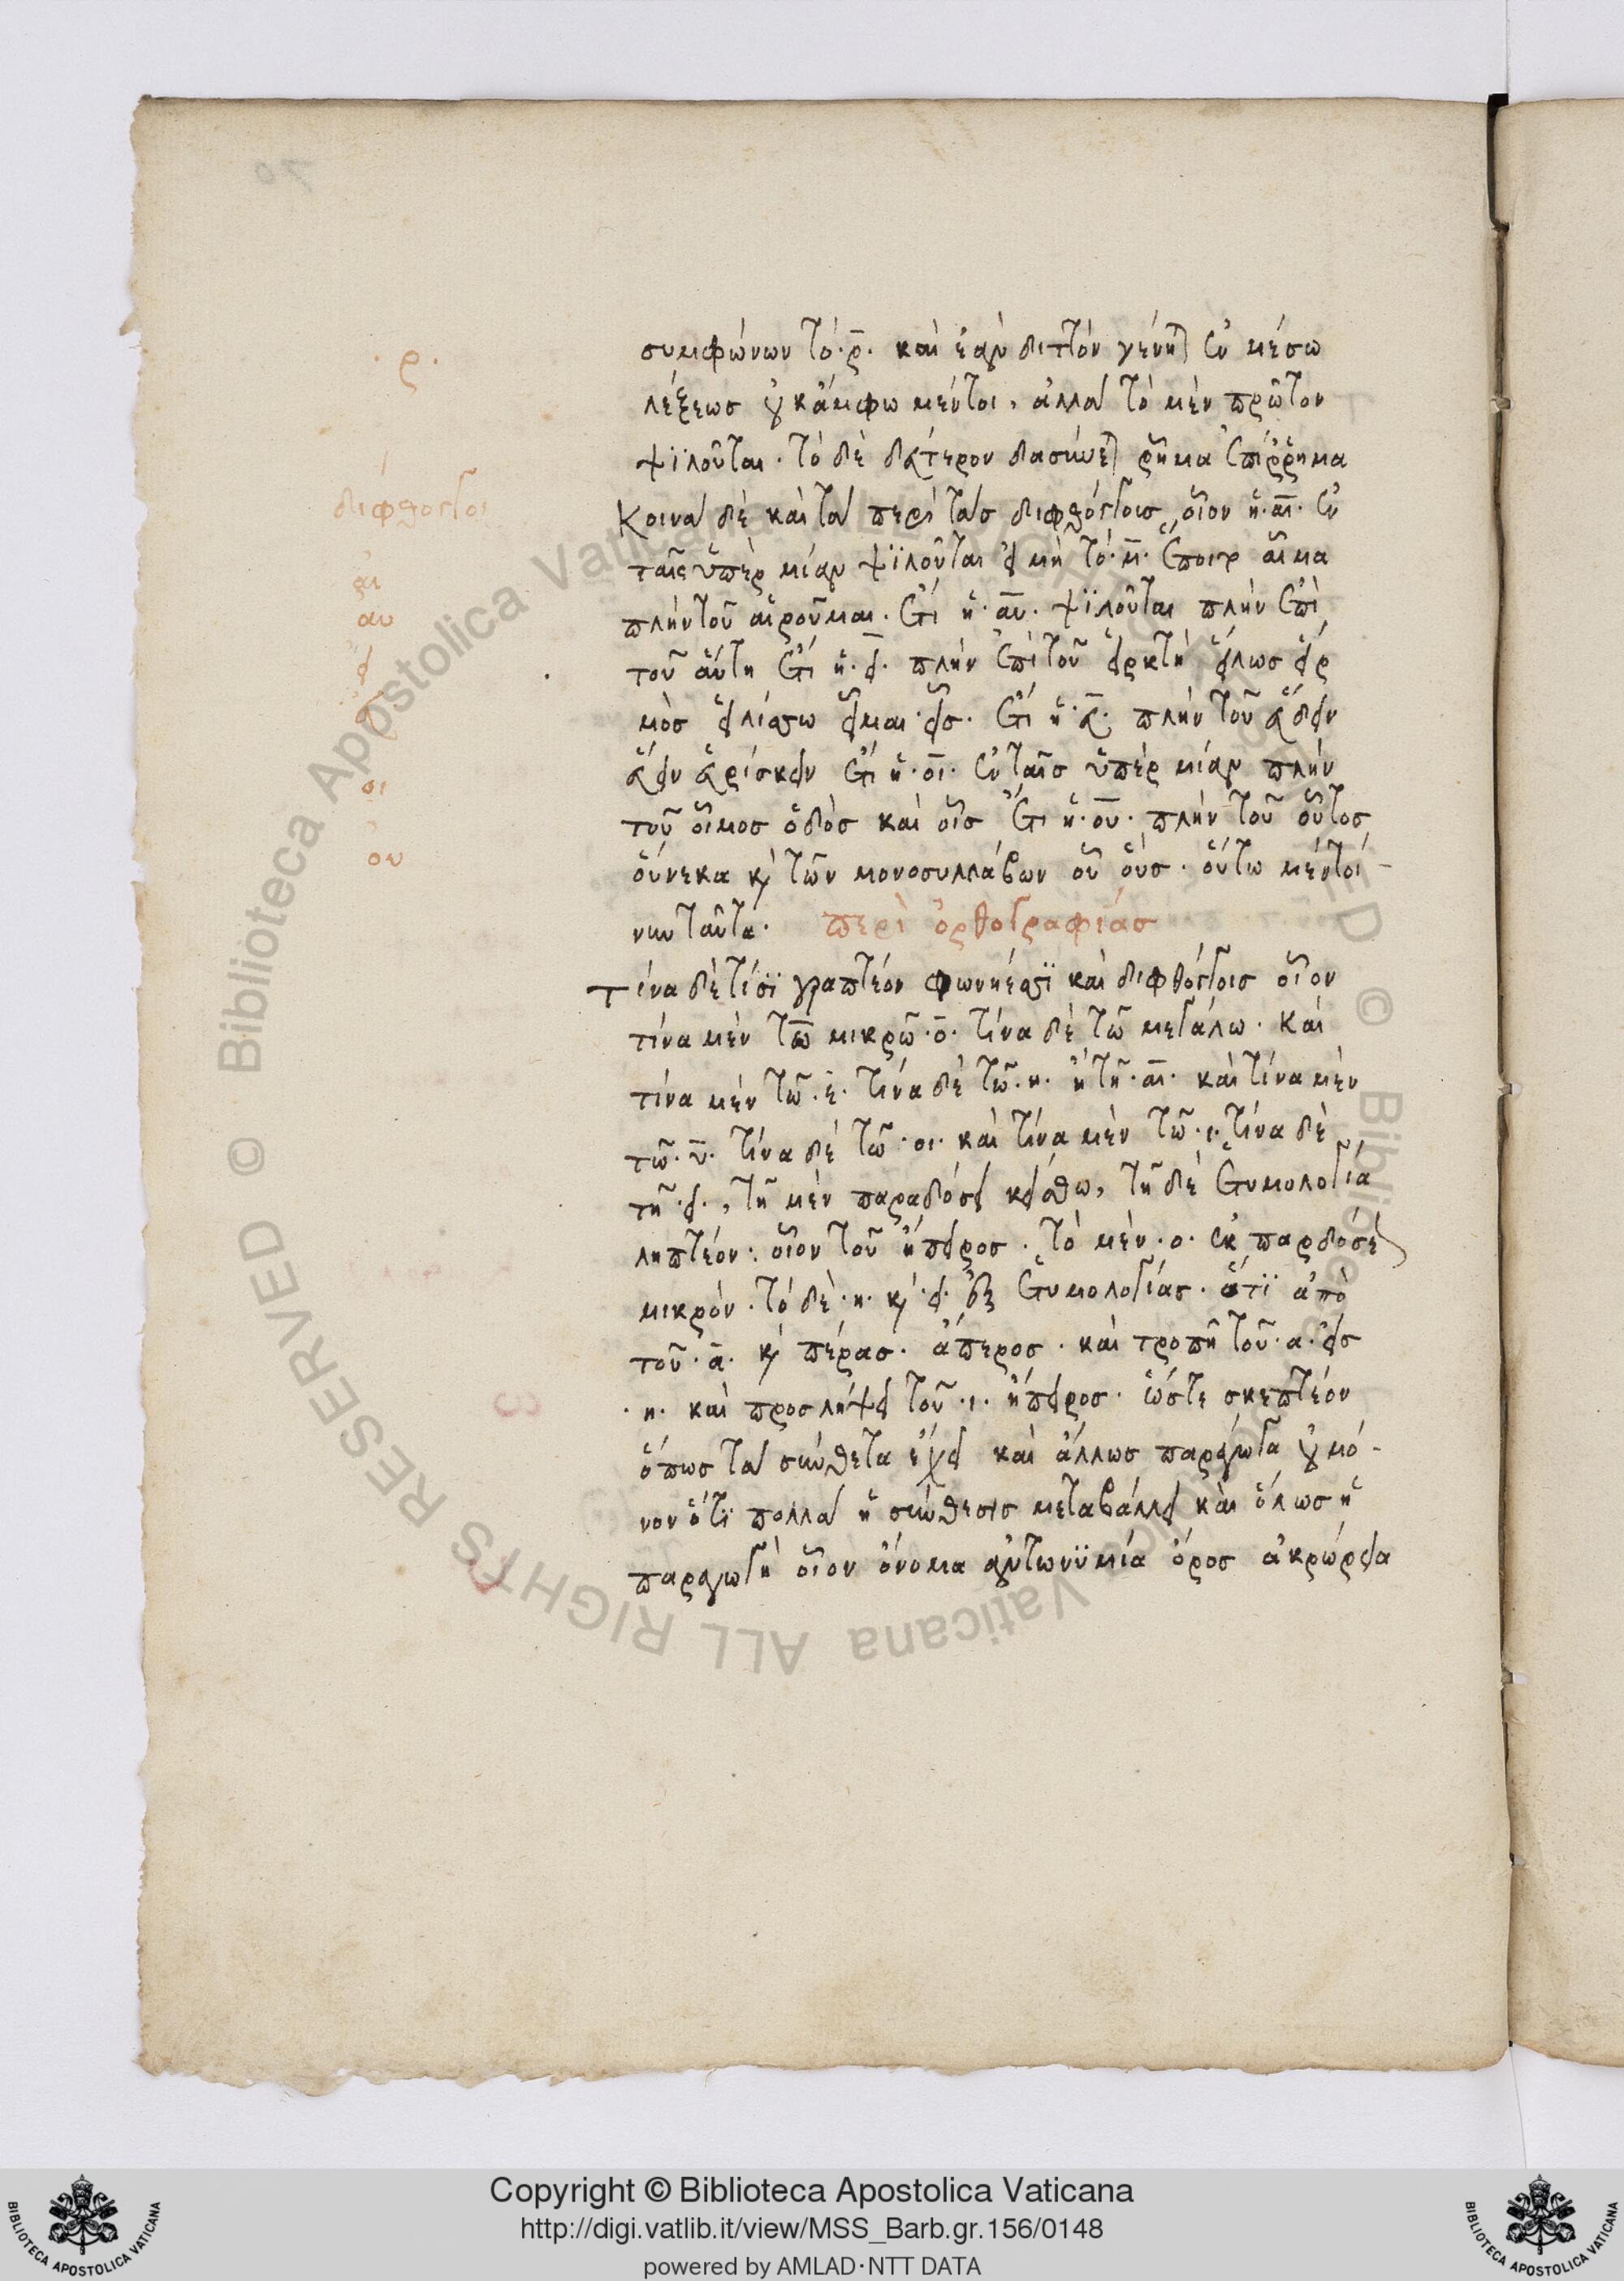 ·ρ·
συμφώνων τὸ·ρ̄· καὶ ἐὰν διττὸν γένηται ἐν μέσω
λέξεως οὐκ ἄμφω μέντοι, ἀλλὰ τὸ μὲν πρῶτον
ψϊλοῦται· τὸ δὲ δεύτερον δασύνεται ῥῆμα ἐπίῤῥημα
διφθογγοι
Κοινὰ δὲ καὶ τὰ περὶ τὰς διφθόγγοις, οἷον ἡ·αῑ· ἐν
αι
ταῖς ὑπὲρ μίαν ψϊλοῦται εἰ μὴ τὸ·μ̄· ἕποιτο αἷμα
αυ
πλὴν τοῦ αἱροῦμαι· ἔτι ἡ·αῡ· ψϊλοῦται πλὴν ἐπὶ
ει
τοῦ αὕτη ἔτι ἡ·ει· πλὴν ἐπὶ τοῦ εἱρκτὴ εἵλως εἱρ
ευ
μὸς εἱλίσσω εἷμαι·εἷς· ἔτι ἡ·ευ· πλὴν τοῦ εὕδειν
οι
εὕειν εὑρίσκειν ἔτι ἡ·οῑ· ἐν ταῖς ὑπὲρ μίαν πλὴν
τοῦ οἷμος ὁδὸς καὶ οἷς ἔτι ἡ·οῡ· πλὴν τοῦ οὗτος
ου
οὕνεκα καὶ τῶν μονοσυλλάβων οὗ οὑς· οὕτω μέντοί-
νυν ταῦτα· περὶ ὀρθογραφίάς
Τίνα δὲ τίσϊ γραπτέον φωνήεσϊ καὶ διφθόγγοις οἷον
τίνα μὲν τῶ μικρῶ·ο̄· τίνα δὲ τῶ μεγάλω· καὶ
τίνα μὲν τῶ·ε̄· τίνα δὲ τῶ·η· ἢ τῆ·αῑ· καὶ τίνα μὲν
τῶ·ῡ· τίνα δὲ τῶ·οι· καὶ τίνα μὲν τῶ·ι· τίνα δὲ
τῆ·ει·, τῆ μὲν παραδόσει κείσθω, τῆ δὲ ἐτυμολογία
ληπτέον: οἷον τοῦ ἤπειρος· τὸ μὲν·ο· ἐκ παραδόσεως
μικρόν· τὸ δὲ·η· καὶ·ει· ἐξ ἐτυμολογίας· ὅτϊ ἀπὸ
τοῦ·ᾱ· καὶ πέρας· ἄπερος· καὶ τροπῆ τοῦ·α·εἰς
·η· καὶ προσλήψει τοῦ·ι· ἤπειρος· ὥστε σκεπτέον
ὅπως τὰ σύνθετα ἔχει καὶ ἄλλως παράγωγα οὐ μό-
νον ὅτϊ πολλὰ ἡ σύνθεσις μεταβάλλει καὶ ὅλως ἡ
παραγωγὴ οἷον ὄνομα ἀντωνϋμία ὄρος ἀκρώρεια
Copyright © Biblioteca Apostolica Vaticana
http://digi.vatlib.it/view/MSS_Barb.gr.156/0148
powered by AMLAD·NTT DATA
BIBLIOTECA APOSTOLICA VATICANA
BIBLIOTECA APOSTOLICA VATICANA
© Biblioteca Apostolica Vaticana ALL RIGHTS RESERVED